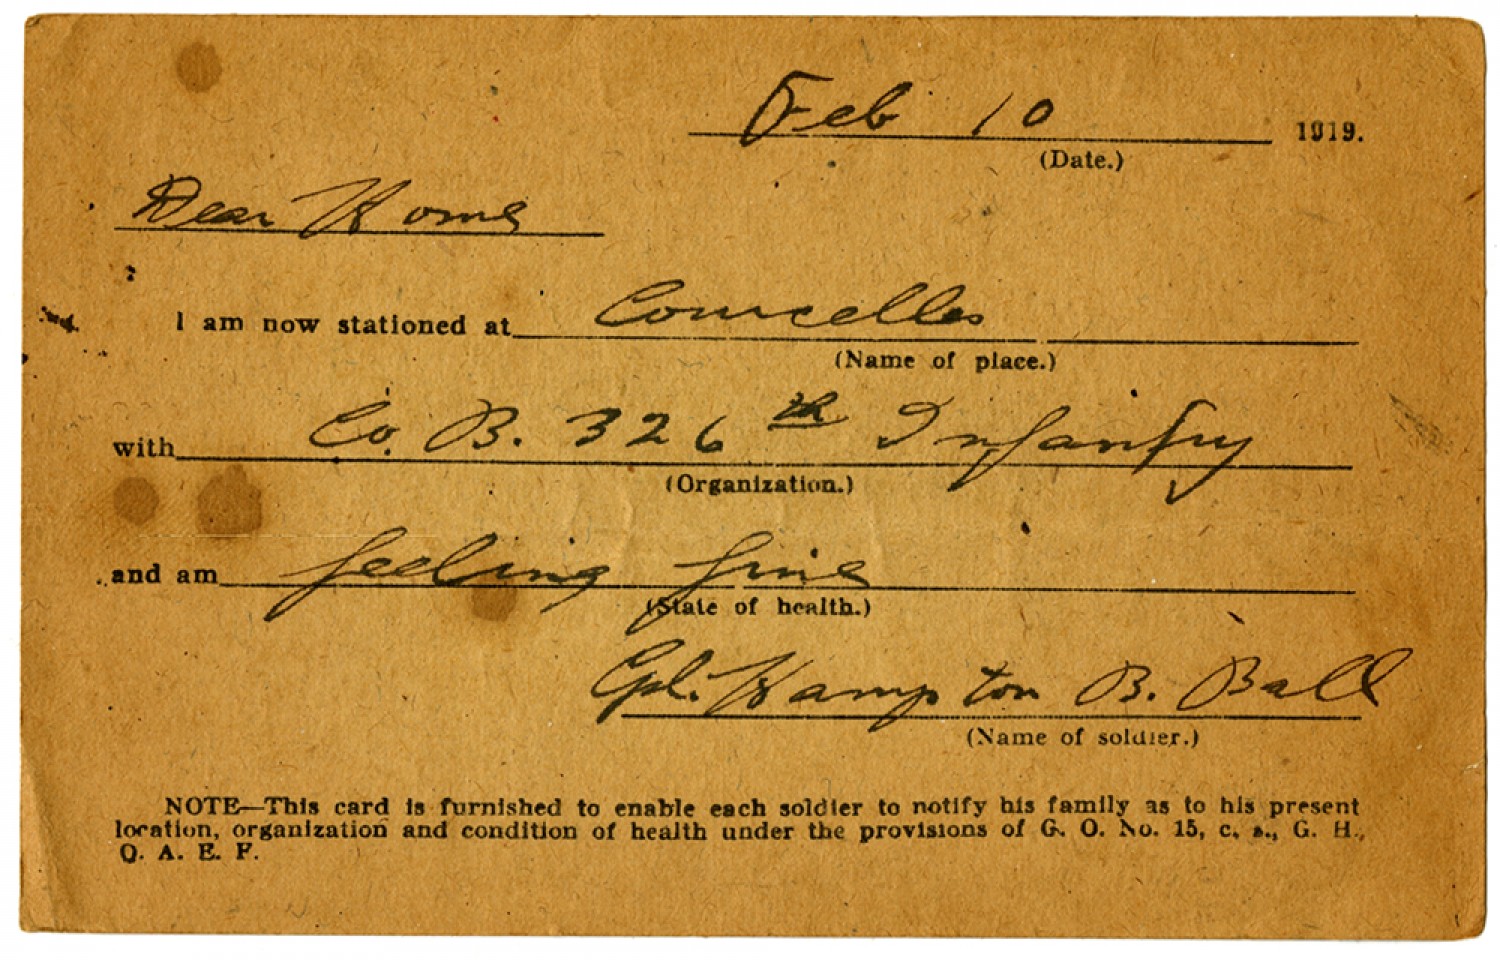 Feb 10 1919.
(Date.)
Dear Home
I am now stationed at Courcelles
(Name of place.)
with Co. B. 326th Infantry
(Organization.)
and am feeling fine
(State of health.)
Cpl. Hampton B. Ball
(Name of soldier.)
NOTE—This card is furnished to enable each soldier to notify his family as to his present
location, organization and condition of health under the provisions of G. O. No. 15, c. s., G. H.,
Q. A. E. F.